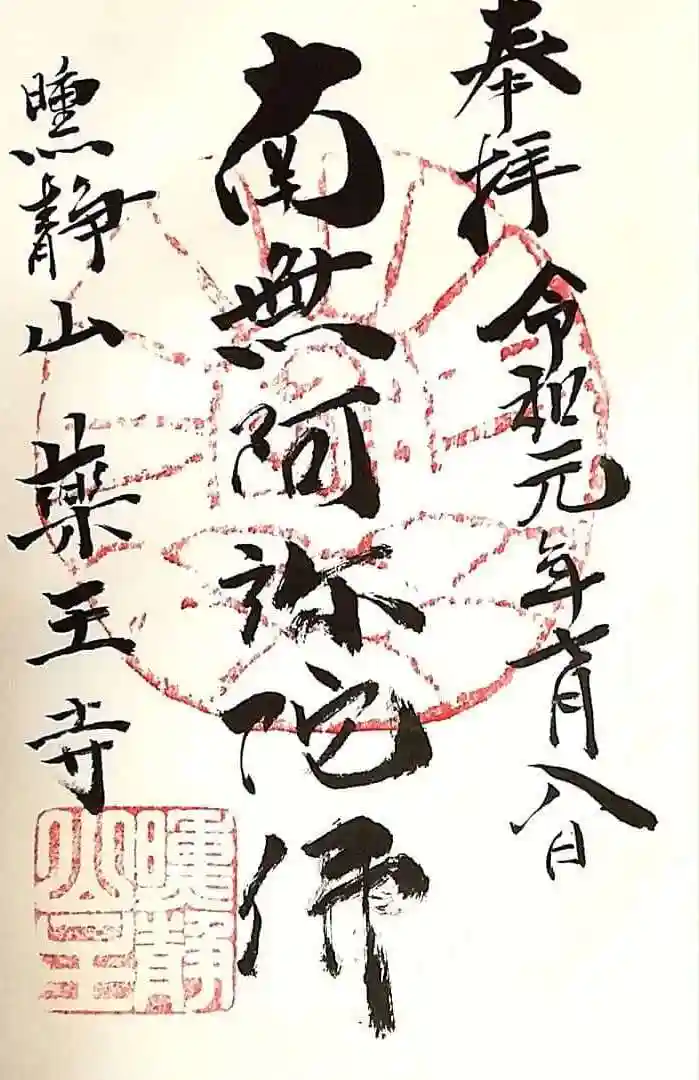 奉拝 令和元年七月八日
南無阿弥陀佛
曛静山 薬王寺
曛静